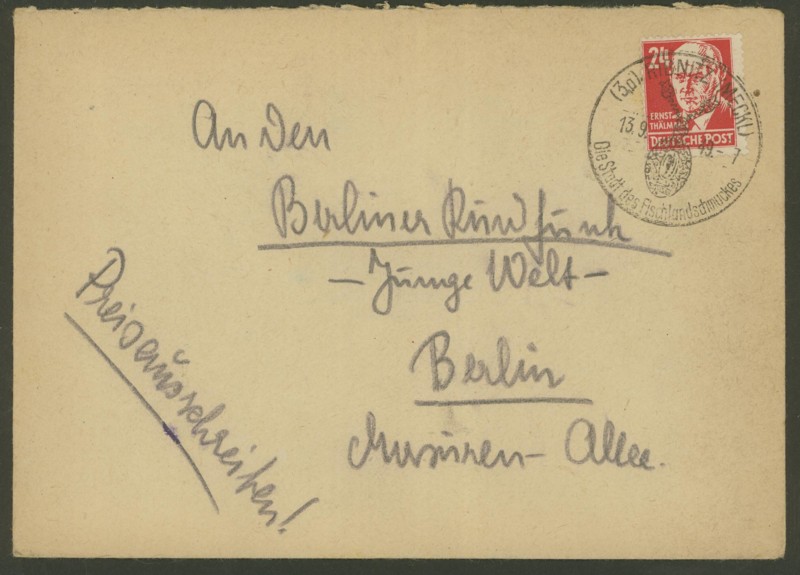 24
ERNST
THÄLMANN
DEUTSCHE POST
(3a) RIBNITZ (MECKL)
13.9.
19.- 7
Die Stadt des Fischlandschmuckes
An Den
Berliner Rundfunk
– Junge Welt –
Berlin
Masuren- Allee.
Preisausschreiben!